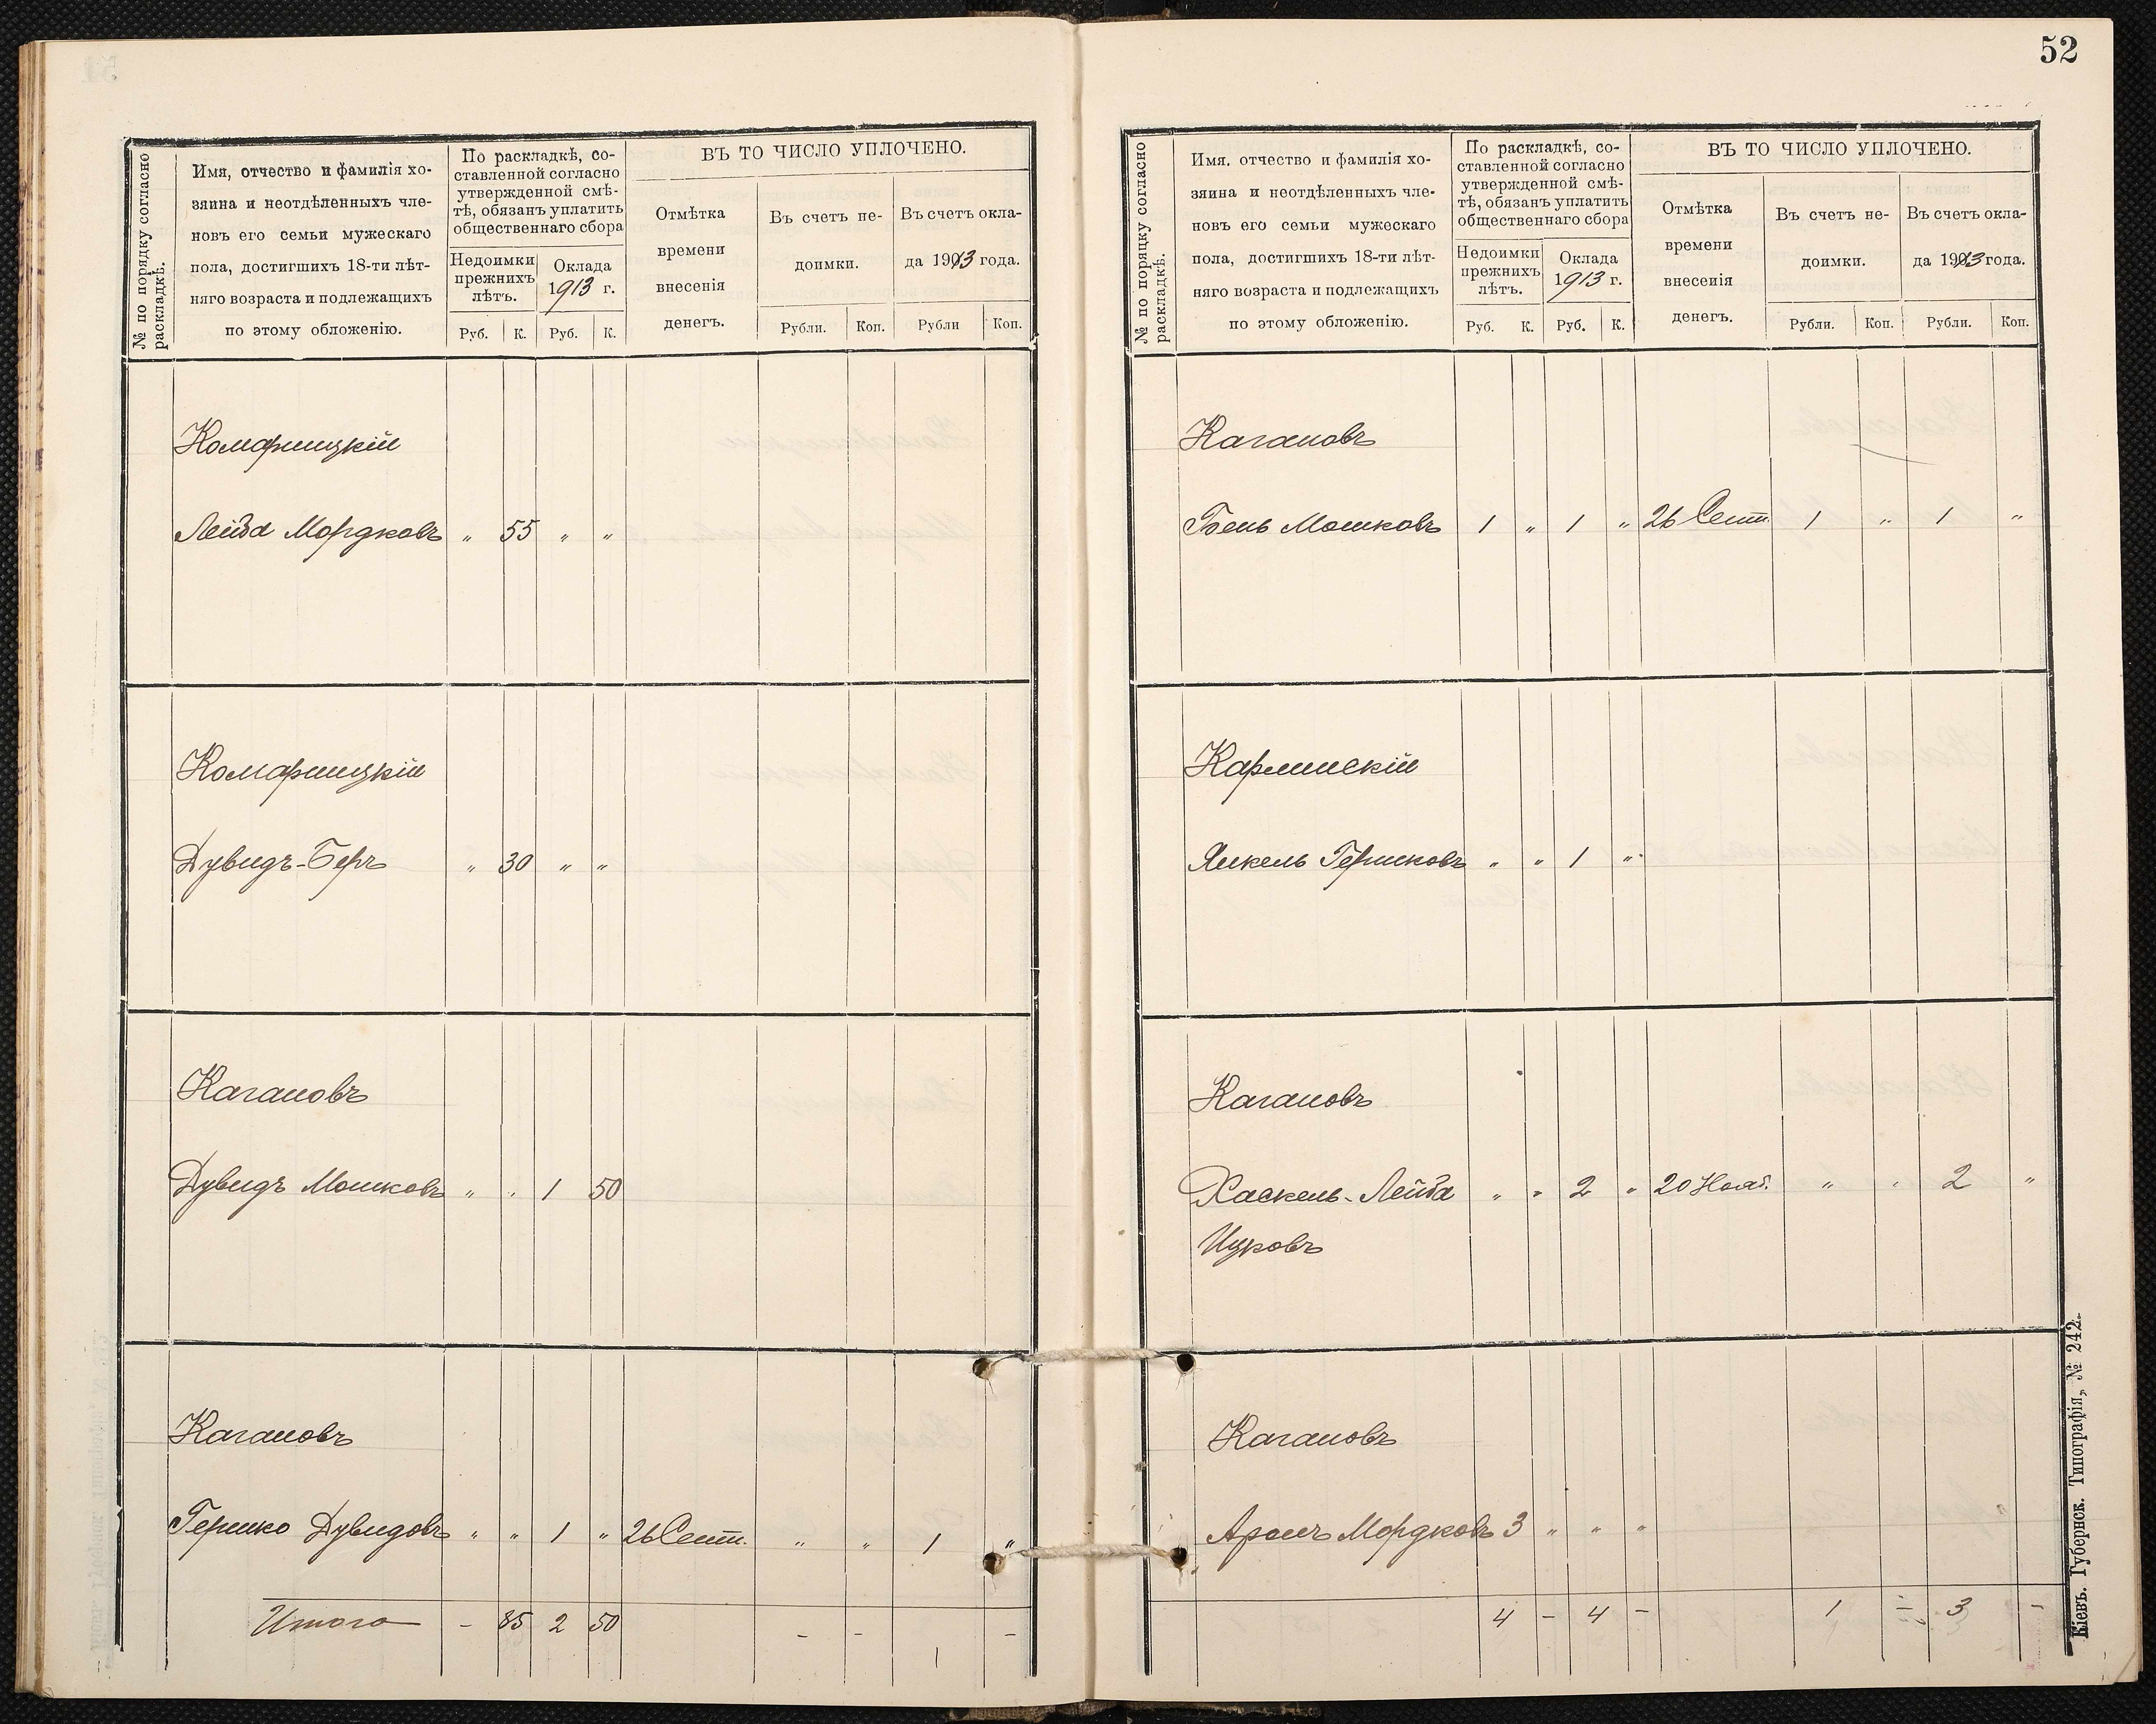 № по порядку согласно
раскладкѣ.
Имя, отчество и фамилія хо-
зяина и неотдѣленныхъ чле-
новъ его семьи мужескаго
пола, достигшихъ 18-ти лѣт-
няго возраста и подлежащихъ
по этому обложенію.
По раскладкѣ, со-
ставленной согласно
утвержденной смѣ-
тѣ, обязанъ уплатить
общественнаго сбора
Недоимки
прежнихъ
лѣтъ.
Оклада
1913 г.
Руб. К. Руб. К.
ВЪ ТО ЧИСЛО УПЛОЧЕНО.
Отмѣтка
времени
внесенія
денегъ.
Въ счетъ не-
доимки.
Въ счетъ окла-
да 1913 года.
Рубли. Коп. Рубли Коп.
Комарницкій
Лейба Мордковъ „ 55 „ „
Комарницкій
Дувидъ-Беръ „ 30 „ „
Кагановъ
Дувидъ Мошковъ „ „ 1 50
Кагановъ
Гершко Дувидовъ „ „ 1 „ 26 Сент. „ „ 1 „
Итого - 85 2 50 - - 1 -
52
№ по порядку согласно
раскладкѣ.
Имя, отчество и фамилія хо-
зяина и неотдѣленныхъ чле-
новъ его семьи мужескаго
пола, достигшихъ 18-ти лѣт-
няго возраста и подлежащихъ
по этому обложенію.
По раскладкѣ, со-
ставленной согласно
утвержденной смѣ-
тѣ, обязанъ уплатить
общественнаго сбора
Недоимки
прежнихъ
лѣтъ.
Оклада
1913 г.
Руб. К. Руб. К.
ВЪ ТО ЧИСЛО УПЛОЧЕНО.
Отмѣтка
времени
внесенія
денегъ.
Въ счетъ не-
доимки.
Въ счетъ окла-
да 1913 года.
Рубли. Коп. Рубли. Коп.
Кагановъ
Бень Мошковъ 1 „ 1 „ 26 Сент. 1 „ 1 „
Карлинскій
Янкель Гершковъ „ „ 1 „
Кагановъ
Хаскель-Лейба „ „ 2 „ 20 Нояб. „ „ 2 „
Ицковъ
Кагановъ
Аронъ Мордковъ 3 „ „ „
4 - 4 - 1 - 3 -
Кіевъ. Губернск. Типографія, № 242.